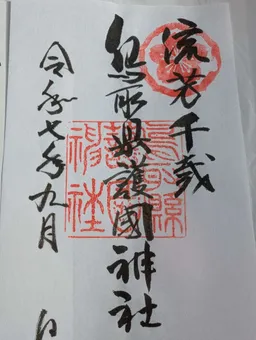 流芳千載
鳥取縣護國神社
令和七年九月 日
鳥取縣
護國
神社